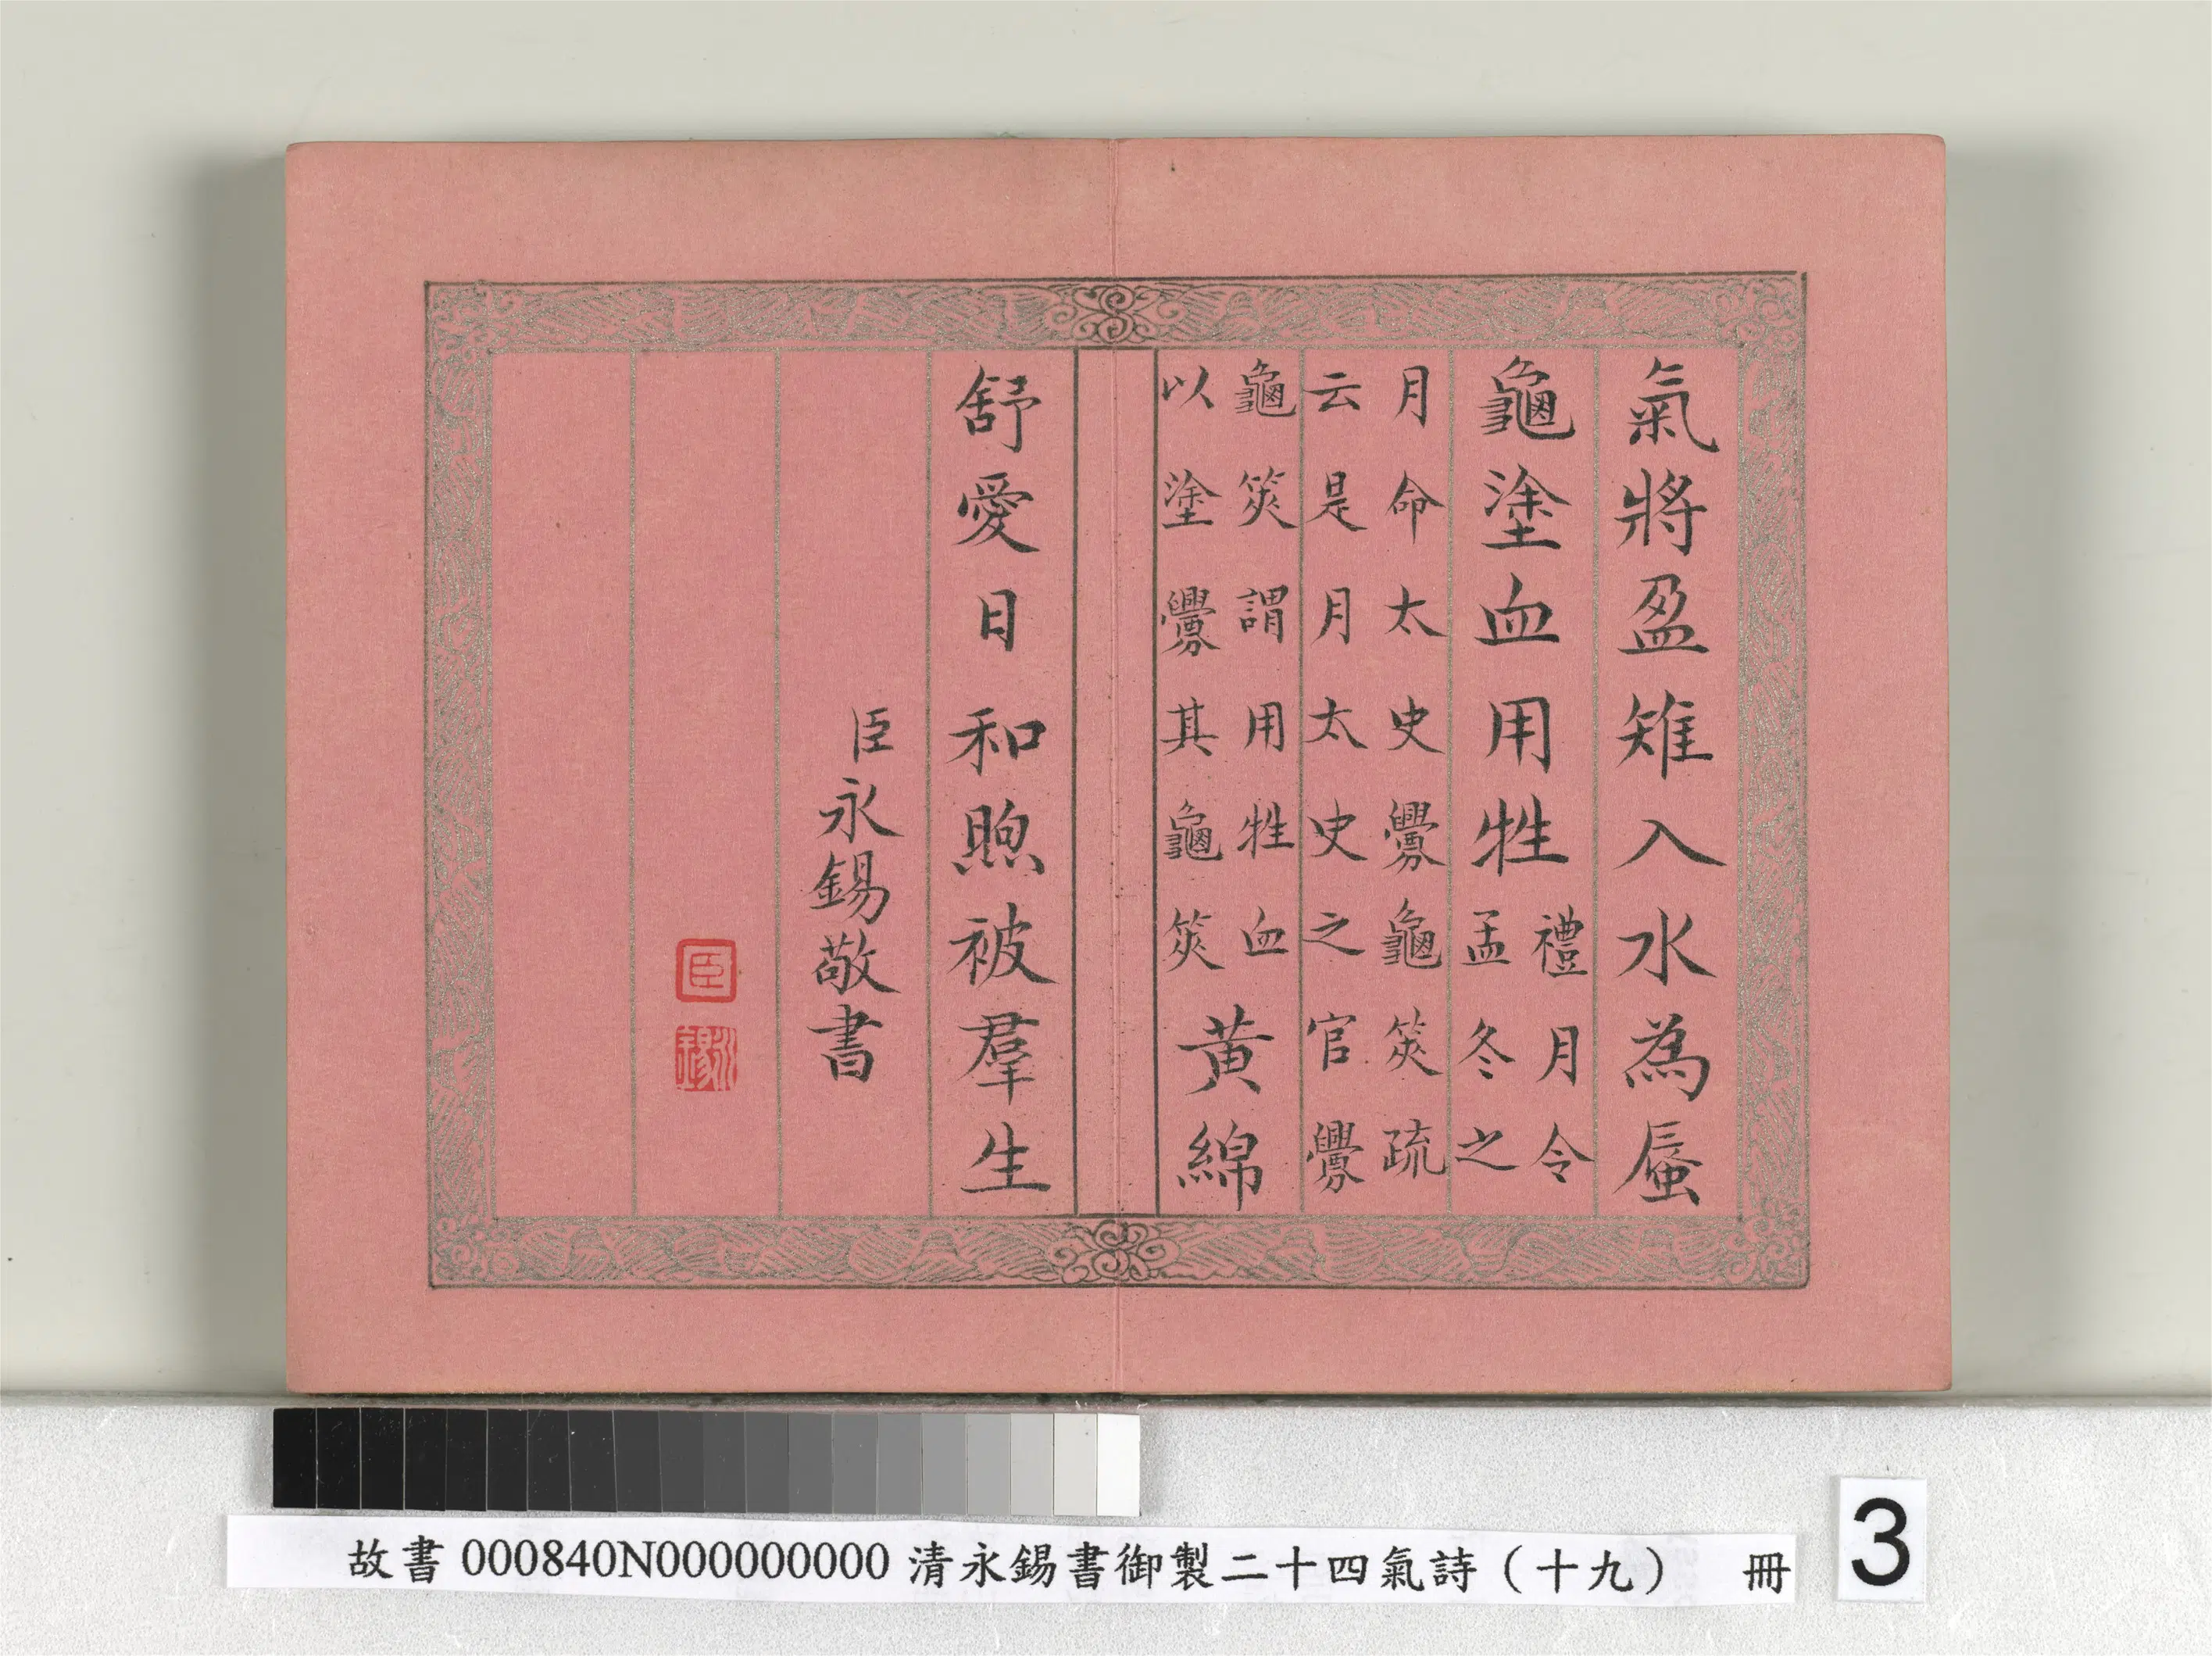 氣將盈雉入水為蜃
龜塗血用牲禮月令
孟冬之
月命太史釁龜筴疏
云是月太史之官釁
龜筴謂用牲血
以塗釁其龜筴黃綿
舒愛日和煦被羣生
臣永錫敬書
臣
永錫
故書 000840N000000000 清永錫書御製二十四氣詩（十九） 冊
3